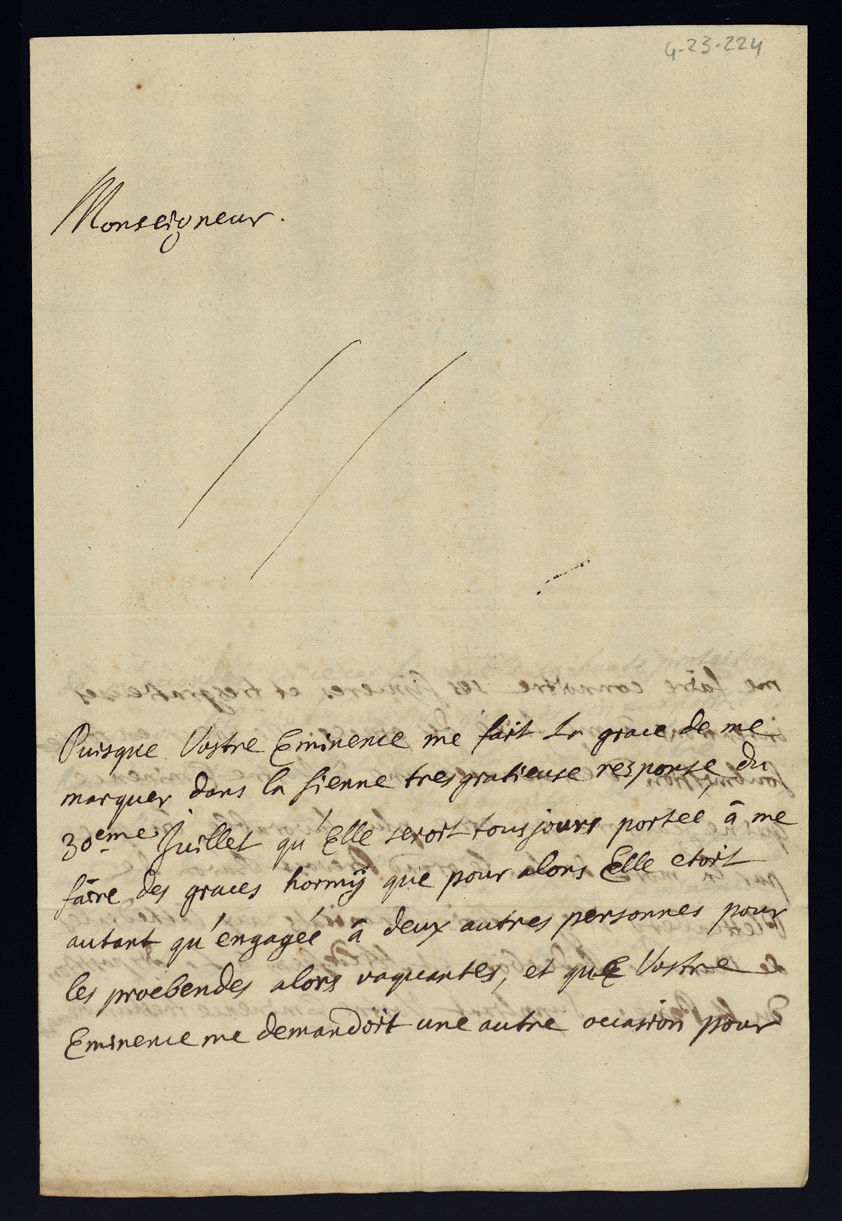 4-23-224
Monseigneur.
Puisque Vostre Eminence me fait la grace de me
marquer dans la sienne tresgratieuse response du
30eme Juillet qu'Elle seroit tousjours porteé â me
faire des graces hormÿ que pour alors Elle etoit
autant qu'engageé â deux autres personnes pour
les proebendes alors vaquantes, et que Vostre
Eminence me demandoit une autre occasion pour